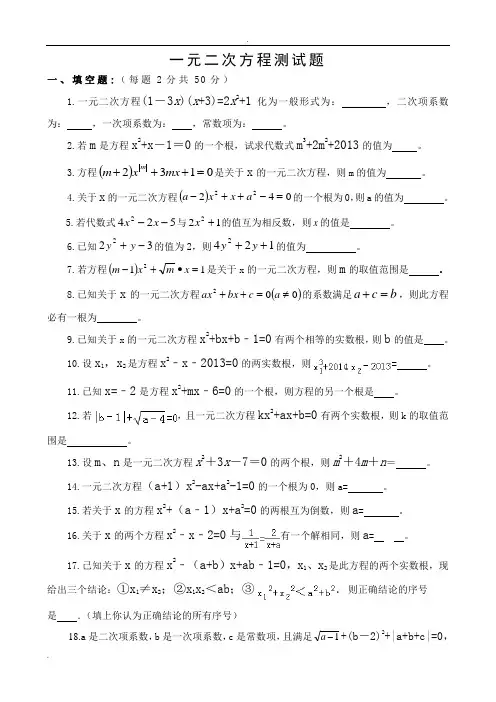 一元二次方程测试题
一、填空题：（每题 2分共 50分）
1.一元二次方程(1－3x)(x+3)=2x²+1 化为一般形式为： ，二次项系数
为： ，一次项系数为： ，常数项为： 。
2.若m是方程x²+x－1＝0的一个根，试求代数式m³+2m²+2013的值为 。
3.方程(m+2)x^|m|+3mx+1=0是关于x的一元二次方程，则m的值为 。
4.关于x的一元二次方程(a-2)x²+x+a²-4=0的一个根为0,则a的值为 。
5.若代数式4x²-2x-5与2x²+1的值互为相反数，则x的值是 。
6.已知2y²+y-3的值为2，则4y²+2y+1的值为 。
7.若方程(m-1)x²+√m•x=1是关于x的一元二次方程，则m的取值范围是 .
8.已知关于x的一元二次方程ax²+bx+c=0(a≠0)的系数满足a+c=b，则此方程
必有一根为 。
9.已知关于x的一元二次方程x²+bx+b﹣1=0有两个相等的实数根，则b的值是 。
10.设x₁，x₂是方程x²﹣x﹣2013=0的两实数根，则x₁³+2014x₂-2013= 。
11.已知x=﹣2是方程x²+mx﹣6=0的一个根，则方程的另一个根是 。
12.若|b-1|+√a-4=0，且一元二次方程kx²+ax+b=0有两个实数根，则k的取值范
围是 。
13.设m、n是一元二次方程x²＋3x－7＝0的两个根，则m²＋4m＋n＝ 。
14.一元二次方程（a+1）x²-ax+a²-1=0的一个根为0，则a= 。
15.若关于x的方程x²+（a﹣1）x+a²=0的两根互为倒数，则a= 。
16.关于x的两个方程x²﹣x﹣2=0与1/(x+1)=2/(x+a)有一个解相同，则a= 。
17.已知关于x的方程x²﹣（a+b）x+ab﹣1=0，x₁、x₂是此方程的两个实数根，现
给出三个结论：①x₁≠x₂；②x₁x₂＜ab；③x₁²+x₂²＜a²+b²．则正确结论的序号
是 ．（填上你认为正确结论的所有序号）
18.a是二次项系数,b是一次项系数,c是常数项,且满足√a-1+(b－2)²+|a+b+c|=0,